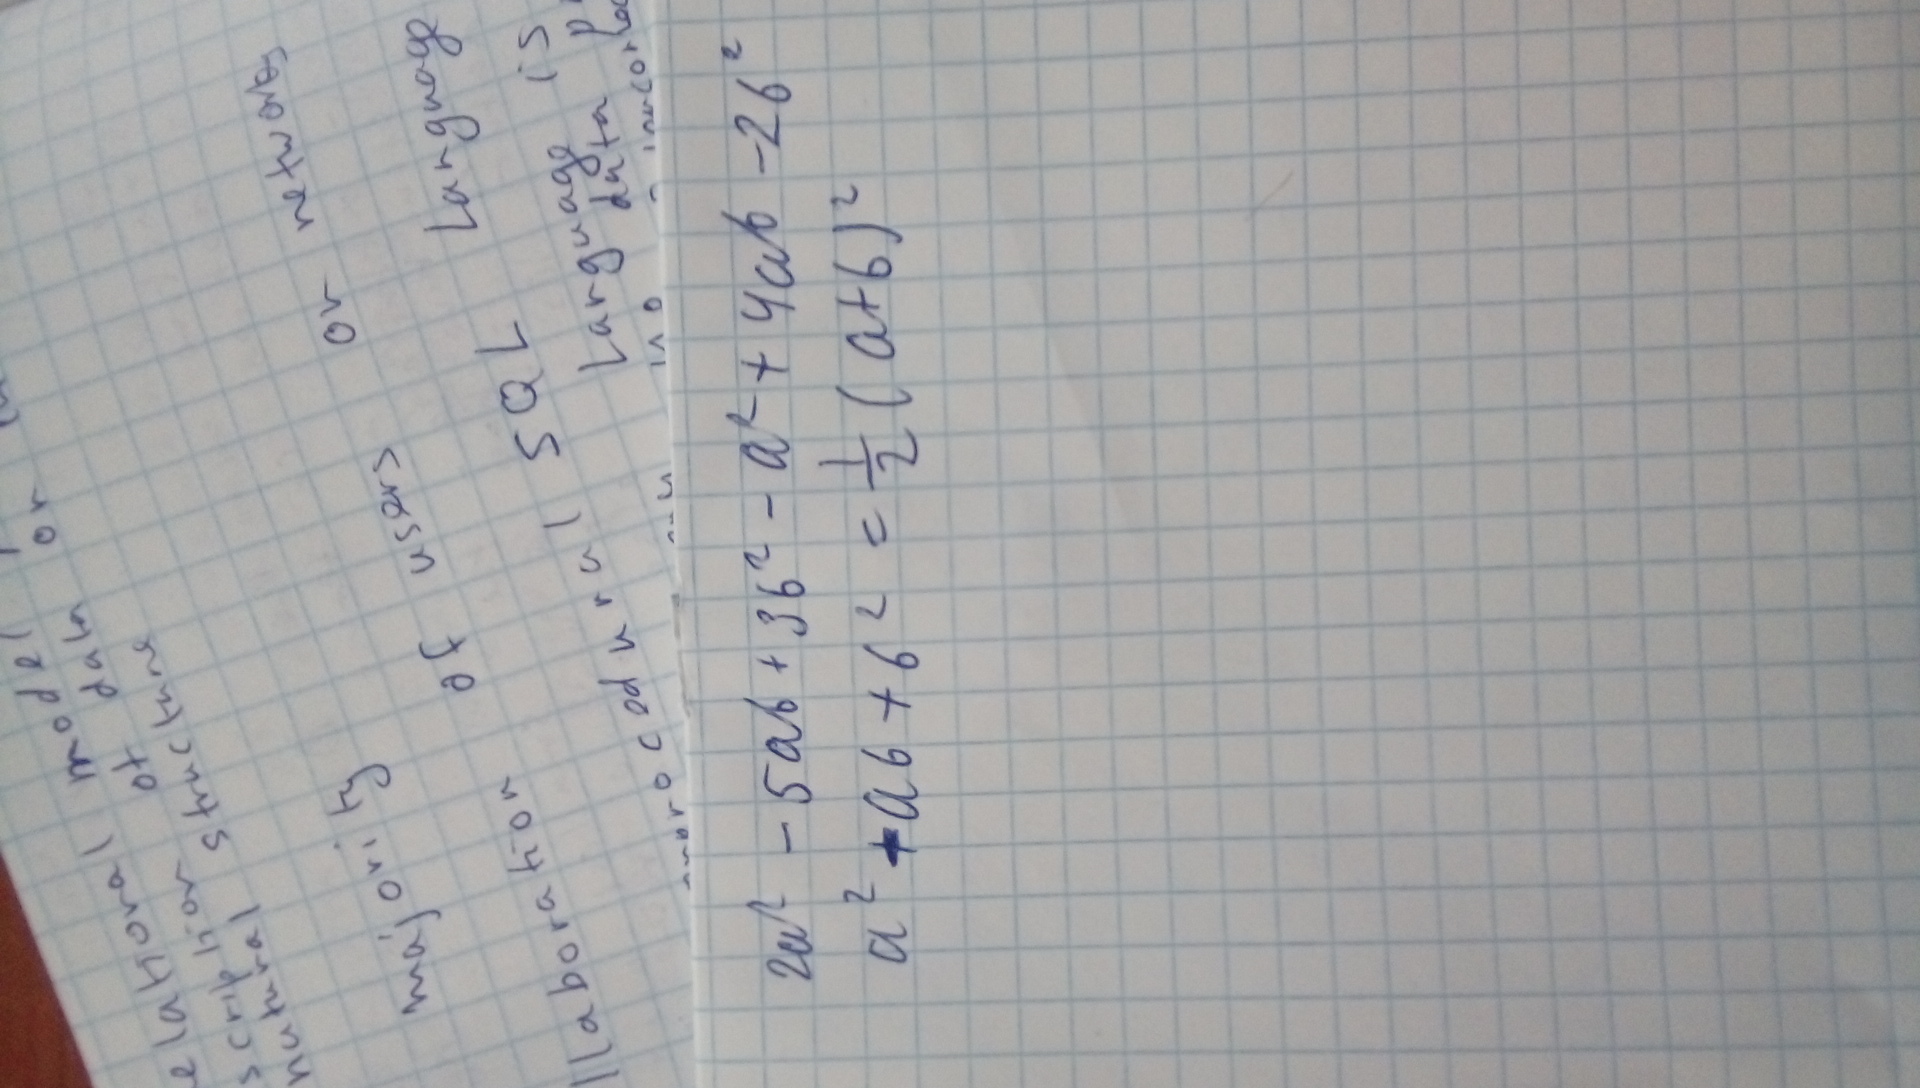 elational model
scription of data or
natural structure
majority of users or networks
llaboration Language
procedural SQL
Language is
data
2a² - 5ab + 3b² - a² + 4ab - 2b²
a² + ab + b² = 1/2 (a+b)²